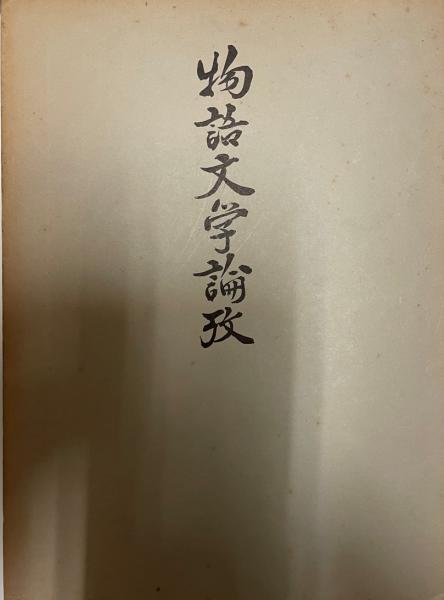 物語文学論攷